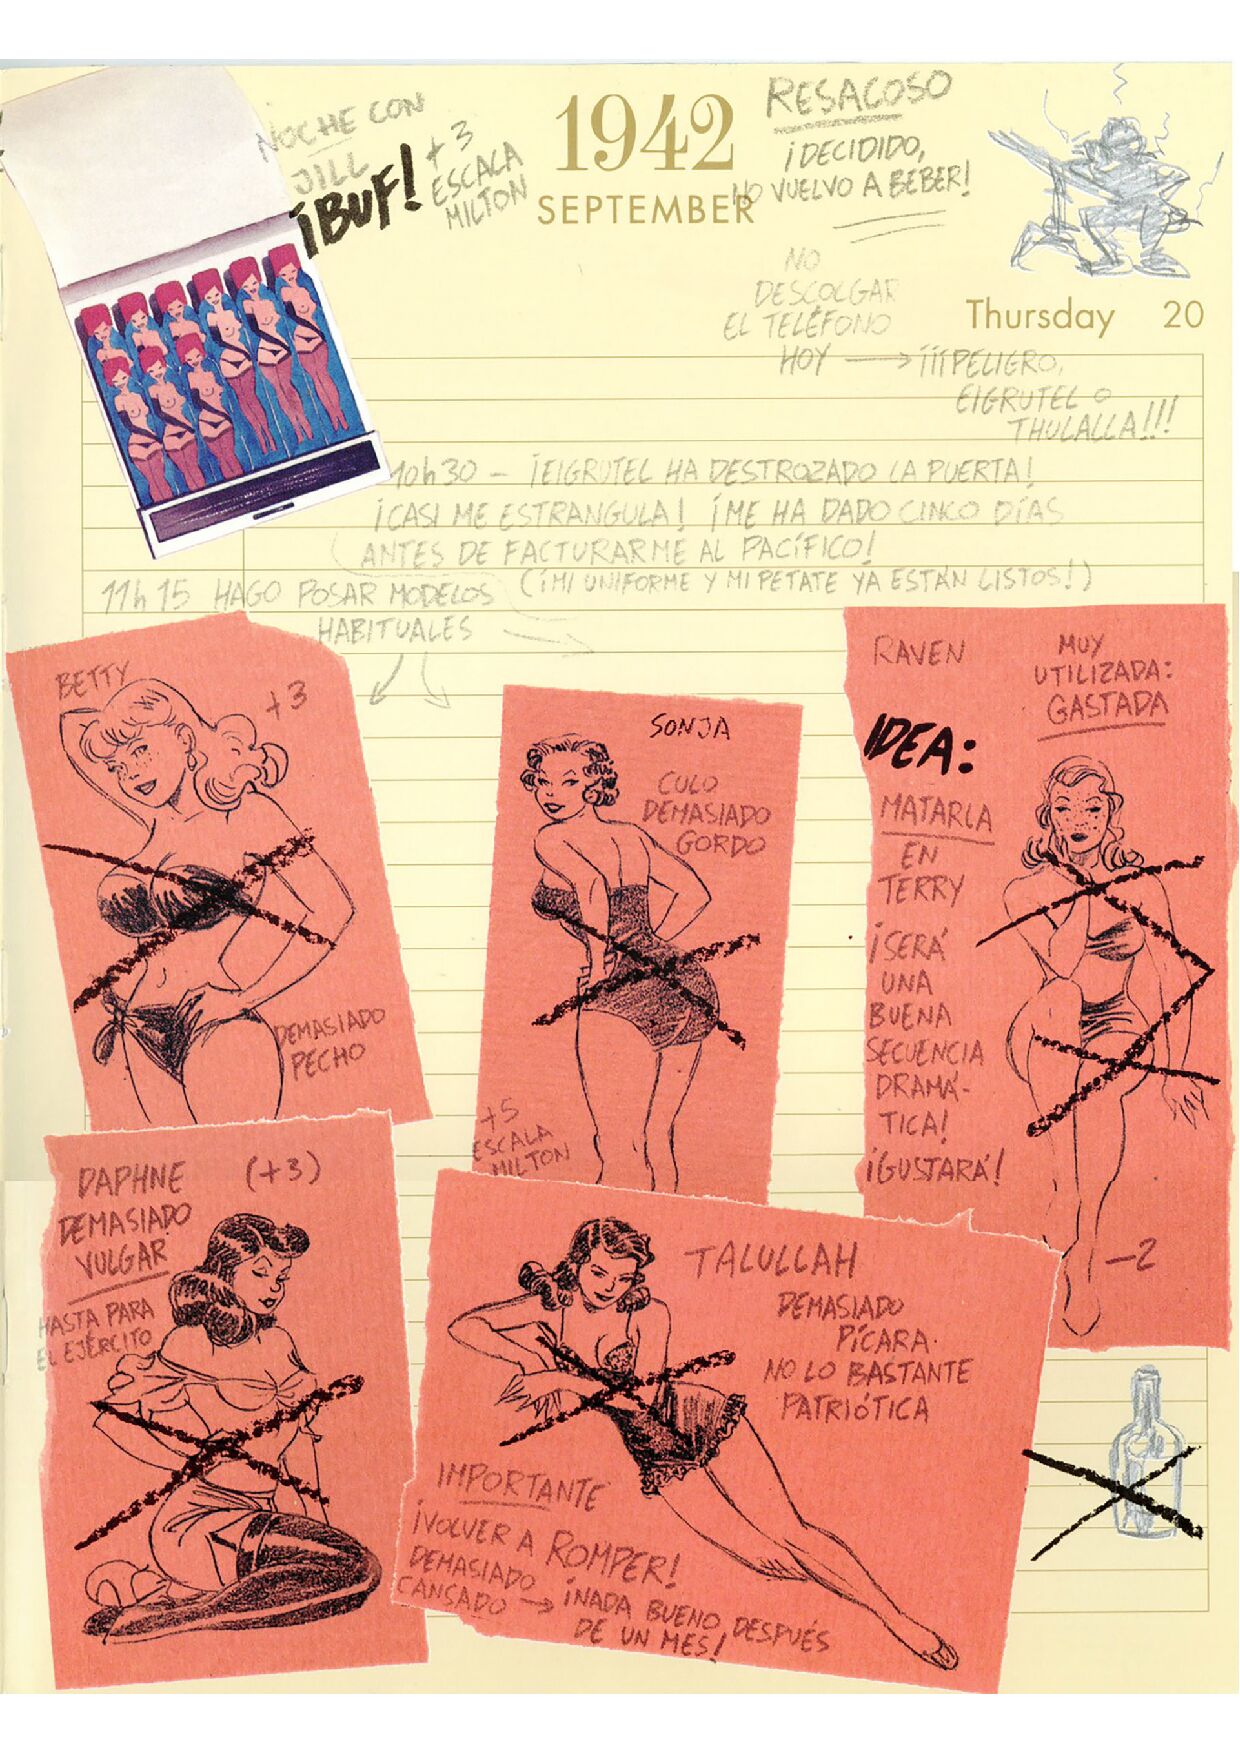 NOCHE CON
JILL
¡BUF!
+3
ESCALA
MILTON
1942
SEPTEMBER
RESACOSO
¡DECIDIDO,
NO VUELVO A BEBER!
Thursday 20
NO
DESCOLGAR
EL TELÉFONO
HOY → ¡¡¡PELIGRO,
EIGRUTEL O
THULALLA!!!
10h30 - ¡EIGRUTEL HA DESTROZADO LA PUERTA!
¡CASI ME ESTRANGULA! ¡ME HA DADO CINCO DÍAS
ANTES DE FACTURARME AL PACÍFICO!
(¡MI UNIFORME Y MI PETATE YA ESTÁN LISTOS!)
11h15 HAGO POSAR MODELOS
HABITUALES
BETTY
+3
DEMASIADO
PECHO
SONJA
CULO
DEMASIADO
GORDO
+5
ESCALA
MILTON
RAVEN
MUY
UTILIZADA:
GASTADA
IDEA:
MATARLA
EN
TERRY
¡SERÁ
UNA
BUENA
SECUENCIA
DRAMÁ-
TICA!
¡GUSTARÁ!
-2
DAPHNE (+3)
DEMASIADO
VULGAR
HASTA PARA
EL EJÉRCITO
TALULLAH
DEMASIADO
PÍCARA.
NO LO BASTANTE
PATRIÓTICA
IMPORTANTE
¡VOLVER A ROMPER!
DEMASIADO
CANSADO → ¡NADA BUENO DESPUÉS
DE UN MES!